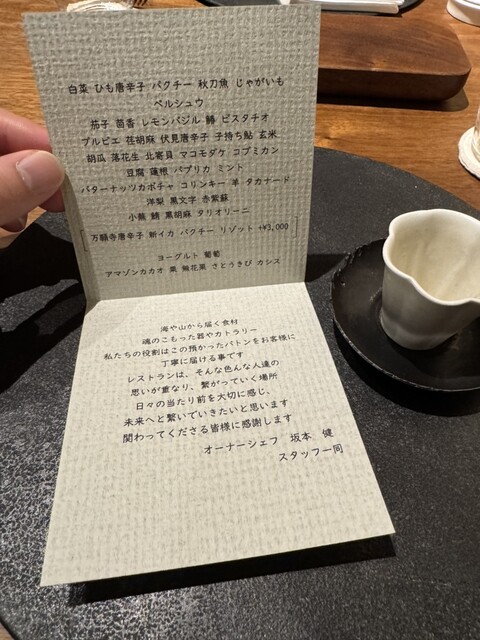 白菜 ひも唐辛子 パクチー 秋刀魚 じゃがいも
ペルシュウ
茄子 茴香 レモンバジル 鱒 ピスタチオ
プルピエ 荏胡麻 伏見唐辛子 子持ち鮎 玄米
胡瓜 落花生 北寄貝 マコモダケ コブミカン
豆腐 蓮根 パプリカ ミント
バターナッツカボチャ コリンキー 羊 タカナード
洋梨 黒文字 赤紫蘇
小蕪 鯖 黒胡麻 タリオリーニ
[万願寺唐辛子 新イカ パクチー リゾット +¥3,000]
ヨーグルト 葡萄
アマゾンカカオ 栗 無花果 さとうきび カシス
海や山から届く食材
魂のこもった器やカトラリー
私たちの役割はこの預かったバトンをお客様に
丁寧に届ける事です
レストランは、そんな色んな人達の
思いが重なり、繋がっていく場所
日々の当たり前を大切に感じ、
未来へと繋いでいきたいと思います
関わってくださる皆様に感謝します
オーナーシェフ 坂本 健
スタッフ一同